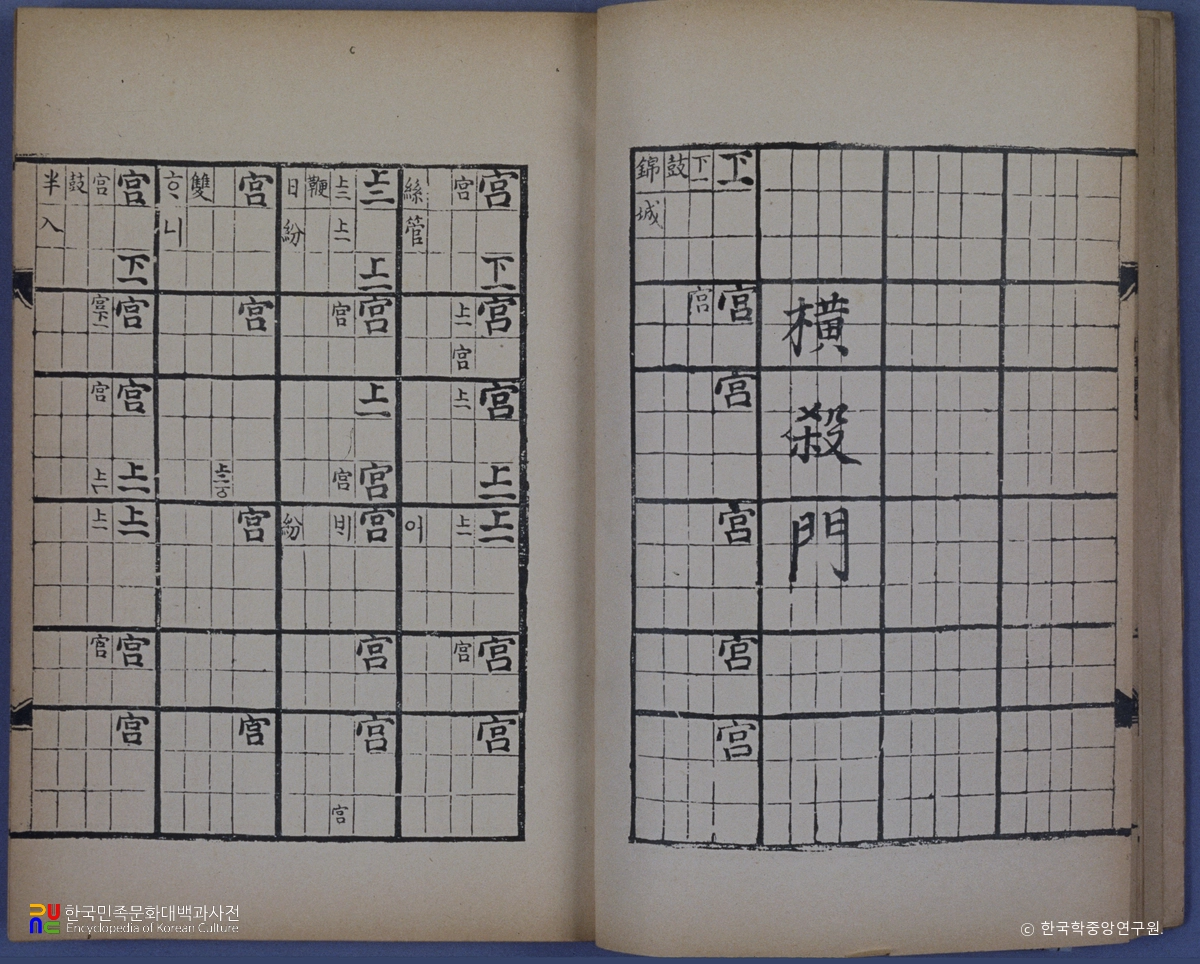 横殺門
下一 宮 宮 宮 宮 宮
下一 宮
鼓
錦城
宮 下一 宮 宮 上一 上二 宮 宮
宮 上一 宮 上一 上一 宮
絲管 어
上二 上一 宮 上一 宮 宮 宮 宮
上二 上一 宮 宮 宮
鞭
日紛 紛
宮 宮 宮 宮
雙
ᄒᆞ니
宮 下一 宮 宮 上一 上一 宮 宮
宮 宮下一 宮 上一 上一 宮
鼓
半入
한국민족문화대백과사전
Encyclopedia of Korean Culture
© 한국학중앙연구원.